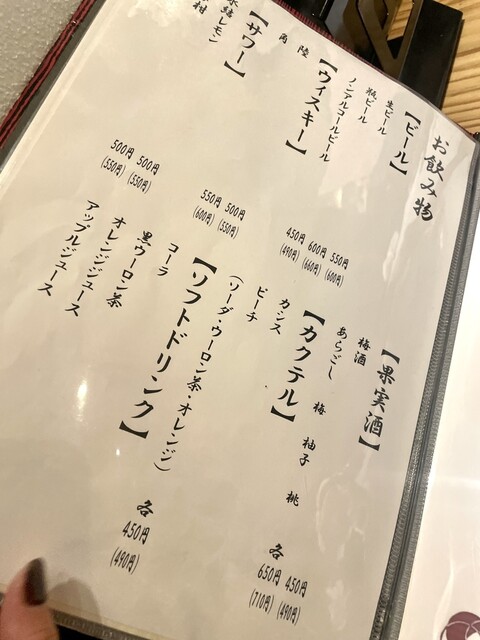 お飲み物
【ビール】
生ビール 550円 (600円)
瓶ビール 600円 (660円)
ノンアルコールビール 450円 (490円)
【ウィスキー】
陸 500円 (550円)
角 550円 (600円)
【サワー】
氷結レモン 500円 (550円)
村 500円 (550円)
【果実酒】
梅酒 450円 (490円)
あらごし 梅 柚子 桃 各 650円 (710円)
【カクテル】
カシス
ピーチ
(ソーダ・ウーロン茶・オレンジ) 各 450円 (490円)
【ソフトドリンク】
コーラ
黒ウーロン茶
オレンジジュース
アップルジュース